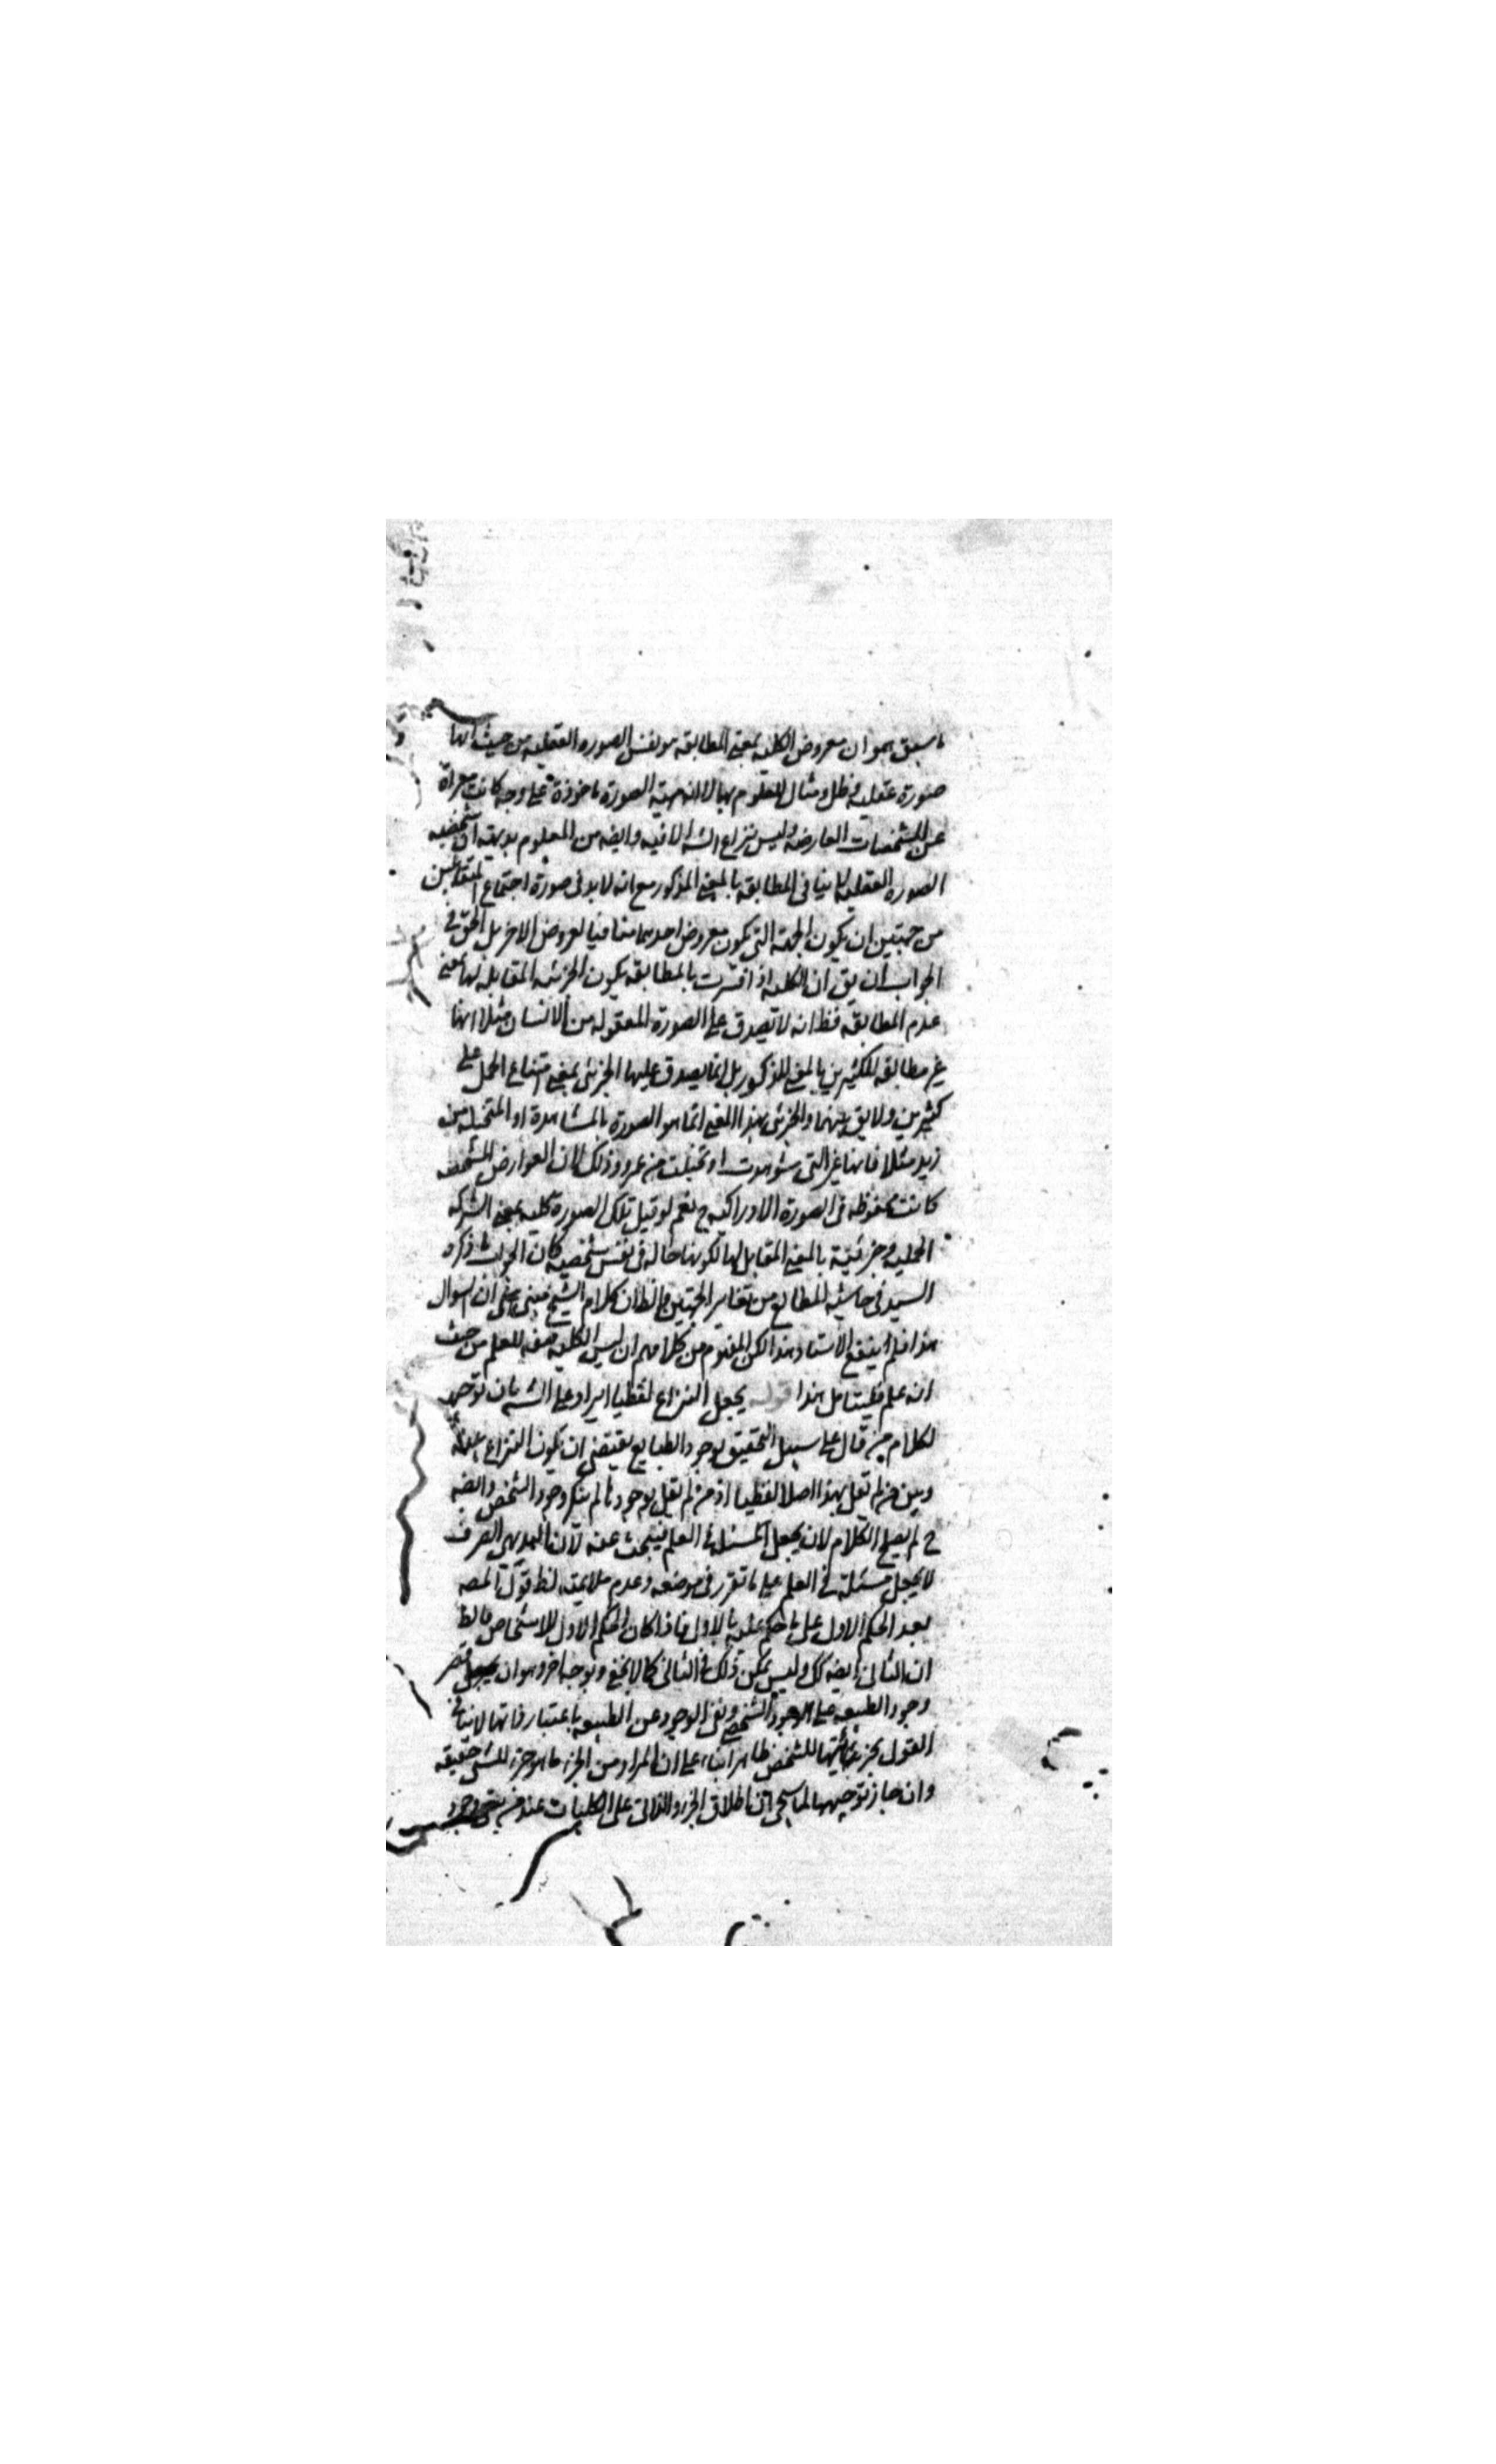 ما سبق هو ان معروض الكلية بمعنى المطابقه هو نفس الصوره العقليه من حيث انها
صورة عقليه وظل ومثال للمعلوم بها لا ان مهية الصورة ماخوذة على وجه كانت معراة
عن المشخصات العارضه وليس نزاع الشه الا فيه وايضه من المعلوم بديهة ان شخصيه
الصوره العقليه لا ينافى المطابقه بالمعنى المذكور مع انه لا بد فى صورة اجتماع المتقابلين
من جهتين ان يكون الجهة التى يكون معروض احدهما منافيا لعروض الاخر بل الحق فى
الجواب ان يق ان الكليه اذا فسرت بالمطابقه يكون الجزئيه المقابله لها بمعنى
عدم المطابقه فظ انه لا تصدق على الصورة المعقوله من الانسان مثلا انها
غير مطابقه للكثيرين بالمعنى المذكور بل انما يصدق عليها الجزئى بمعنى امتناع الحمل على
كثيرين ولا يق بينهما والجزئى بهذا المعنى انما هو الصورة المشاهدة او المتخيله من
زيد مثلا فانها غير التى شوهدت او تخيلت من عمرو وذلك لان العوارض المشخصه
كانت محفوظه فى الصورة الادراكيه ح نعم لو قيل تلك الصورة كليه بمعنى الشركه
الحمليه وجزئية بالمعنى المقابل لها لكونها حاله فى نفس شخصيه كان الجواب ما ذكره
السيد فى حاشيه المطالع من تغاير الجهتين والظ ان كلام الشيخ مبنى على ان السوال
هذا فلم ينفع الاستاد هذا لكن المفهوم من كلامهم ان ليس الكليه صفه للعلم من حيث
انه علم فليتامل هذا قوله يجعل النزاع لفظيا ايراد على الشه بان توجيه
لكلام من قال على سبيل التحقيق بوجود الطبايع يقتضى ان يكون النزاع بينه
وبين من لم يقل بهذا اصلا لفظيا اذ من لم يقل بوجودها لم ينكر وجود الشخص وايضه
ح لم يصلح الكلام لان يجعل المسئله فى العلم فيبحث عنه لان البديهى الصرف
لا يجعل مسئلة فى العلم على ما تقرر فى موضعه وعدم ملايمته لظ قول المصه
بعد الحكم الاول على ما حكم عليه بالاول فاذا كان الحكم الاول للاشخاص فالظ
ان الثانى ايضه كك وليس يمكن ذلك فى الثانى كما لا يخفى وبوجه اخر وهو ان
وجود الطبيعه على الوجود الشخصى ونفى الوجود عن الطبيعه باعتبار ذاتها لا ينافى
القول بجزئيتها للشخص ظاهرا بناء على ان المراد من الجزء ما هو جزء للشئ حقيقه
وان جاز توجيهها لما سيجئ ان اطلاق الجزء والذاتى على الكليات عند من